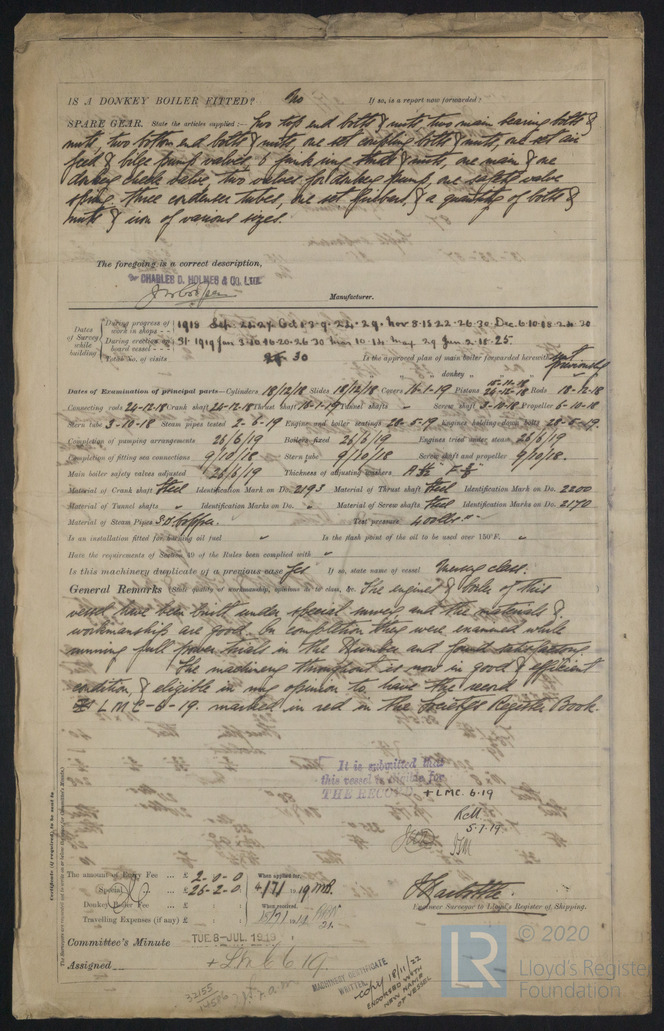 IS A DONKEY BOILER FITTED? No If so, is a report now forwarded?
SPARE GEAR. State the articles supplied:— Two top end bolts & nuts, two main bearing bolts &
nuts, two bottom end bolts & nuts, one set coupling bolts & nuts, one set air
feed & bilge pump valves, 6 junk ring studs & nuts, one main & one
donkey check valve, two valves for donkey pump, one safety valve
spring, three condenser tubes, one set firebars, & a quantity of bolts &
nuts & iron of various sizes.
The foregoing is a correct description,
For CHARLES D. HOLMES & CO. LTD.
Manufacturer.
Dates of Survey while building
During progress of work in shops - - 1918 Sep. 24.27 Oct 8.2.9.22.29. Nov 8.15.22.26.30. Dec. 6.10.18.24.30
During erection on board vessel - - - 31. 1919 Jan 3.10.16.20.26.30 Mar 10.14 May 29 Jun 2.18.25.
Total No. of visits 30 Is the approved plan of main boiler forwarded herewith sent previously
" " " donkey " " "
Dates of Examination of principal parts—Cylinders 18/12/18 Slides 18/12/18 Covers 16-1-19 Pistons 24-12-18 Rods 18-12-18
Connecting rods 24-12-18 Crank shaft 24-12-18 Thrust shaft 16-1-19 Tunnel shafts " Screw shaft 3-10-18 Propeller 6-10-18
Stern tube 3-10-18 Steam pipes tested 2-6-19 Engine and boiler seatings 28-5-19 Engines holding down bolts 28-5-19.
Completion of pumping arrangements 25/6/19 Boilers fixed 25/6/19 Engines tried under steam 25/6/19
Completion of fitting sea connections 9/10/18 Stern tube 9/10/18 Screw shaft and propeller 9/10/18.
Main boiler safety valves adjusted 25/6/19 Thickness of adjusting washers
Material of Crank shaft Steel Identification Mark on Do. 2193 Material of Thrust shaft Steel Identification Mark on Do. 2200
Material of Tunnel shafts " Identification Marks on Do. " Material of Screw shafts Steel Identification Marks on Do. 2170
Material of Steam Pipes S.D. Copper. Test pressure 400 lbs
Is an installation fitted for burning oil fuel " Is the flash point of the oil to be used over 150°F. "
Have the requirements of Section 49 of the Rules been complied with "
Is this machinery duplicate of a previous case Yes If so, state name of vessel Mersey class.
General Remarks (State quality of workmanship, opinions as to class, &c. The engines & boiler of this
vessel have been built under special survey and the materials &
workmanship are good. On completion they were examined while
running full power trials in the Humber and found satisfactory.
The machinery throughout is now in good & efficient
condition, & eligible in my opinion to have the record
LMC-6-19. marked in red in the Society's Register Book.
It is submitted that
this vessel is eligible for
THE RECORD. + LMC. 6.19
5.7.19
Certificate (if required) to be sent to
The amount of Entry Fee ... £ 2-0-0 When applied for,
Special ... £ 26-2-0 4/7/1919
Donkey Boiler Fee ... £ When received,
Travelling Expenses (if any) £
Engineer Surveyor to Lloyd's Register of Shipping.
Committee's Minute TUE. 8-JUL. 1919
Assigned + LMC 6 19
MACHINERY CERTIFICATE
WRITTEN.
copy 18/11/22
ENDORSED WITH
NEW NAME
OF VESSEL
32155
© 2020
LR Lloyd's Register
Foundation